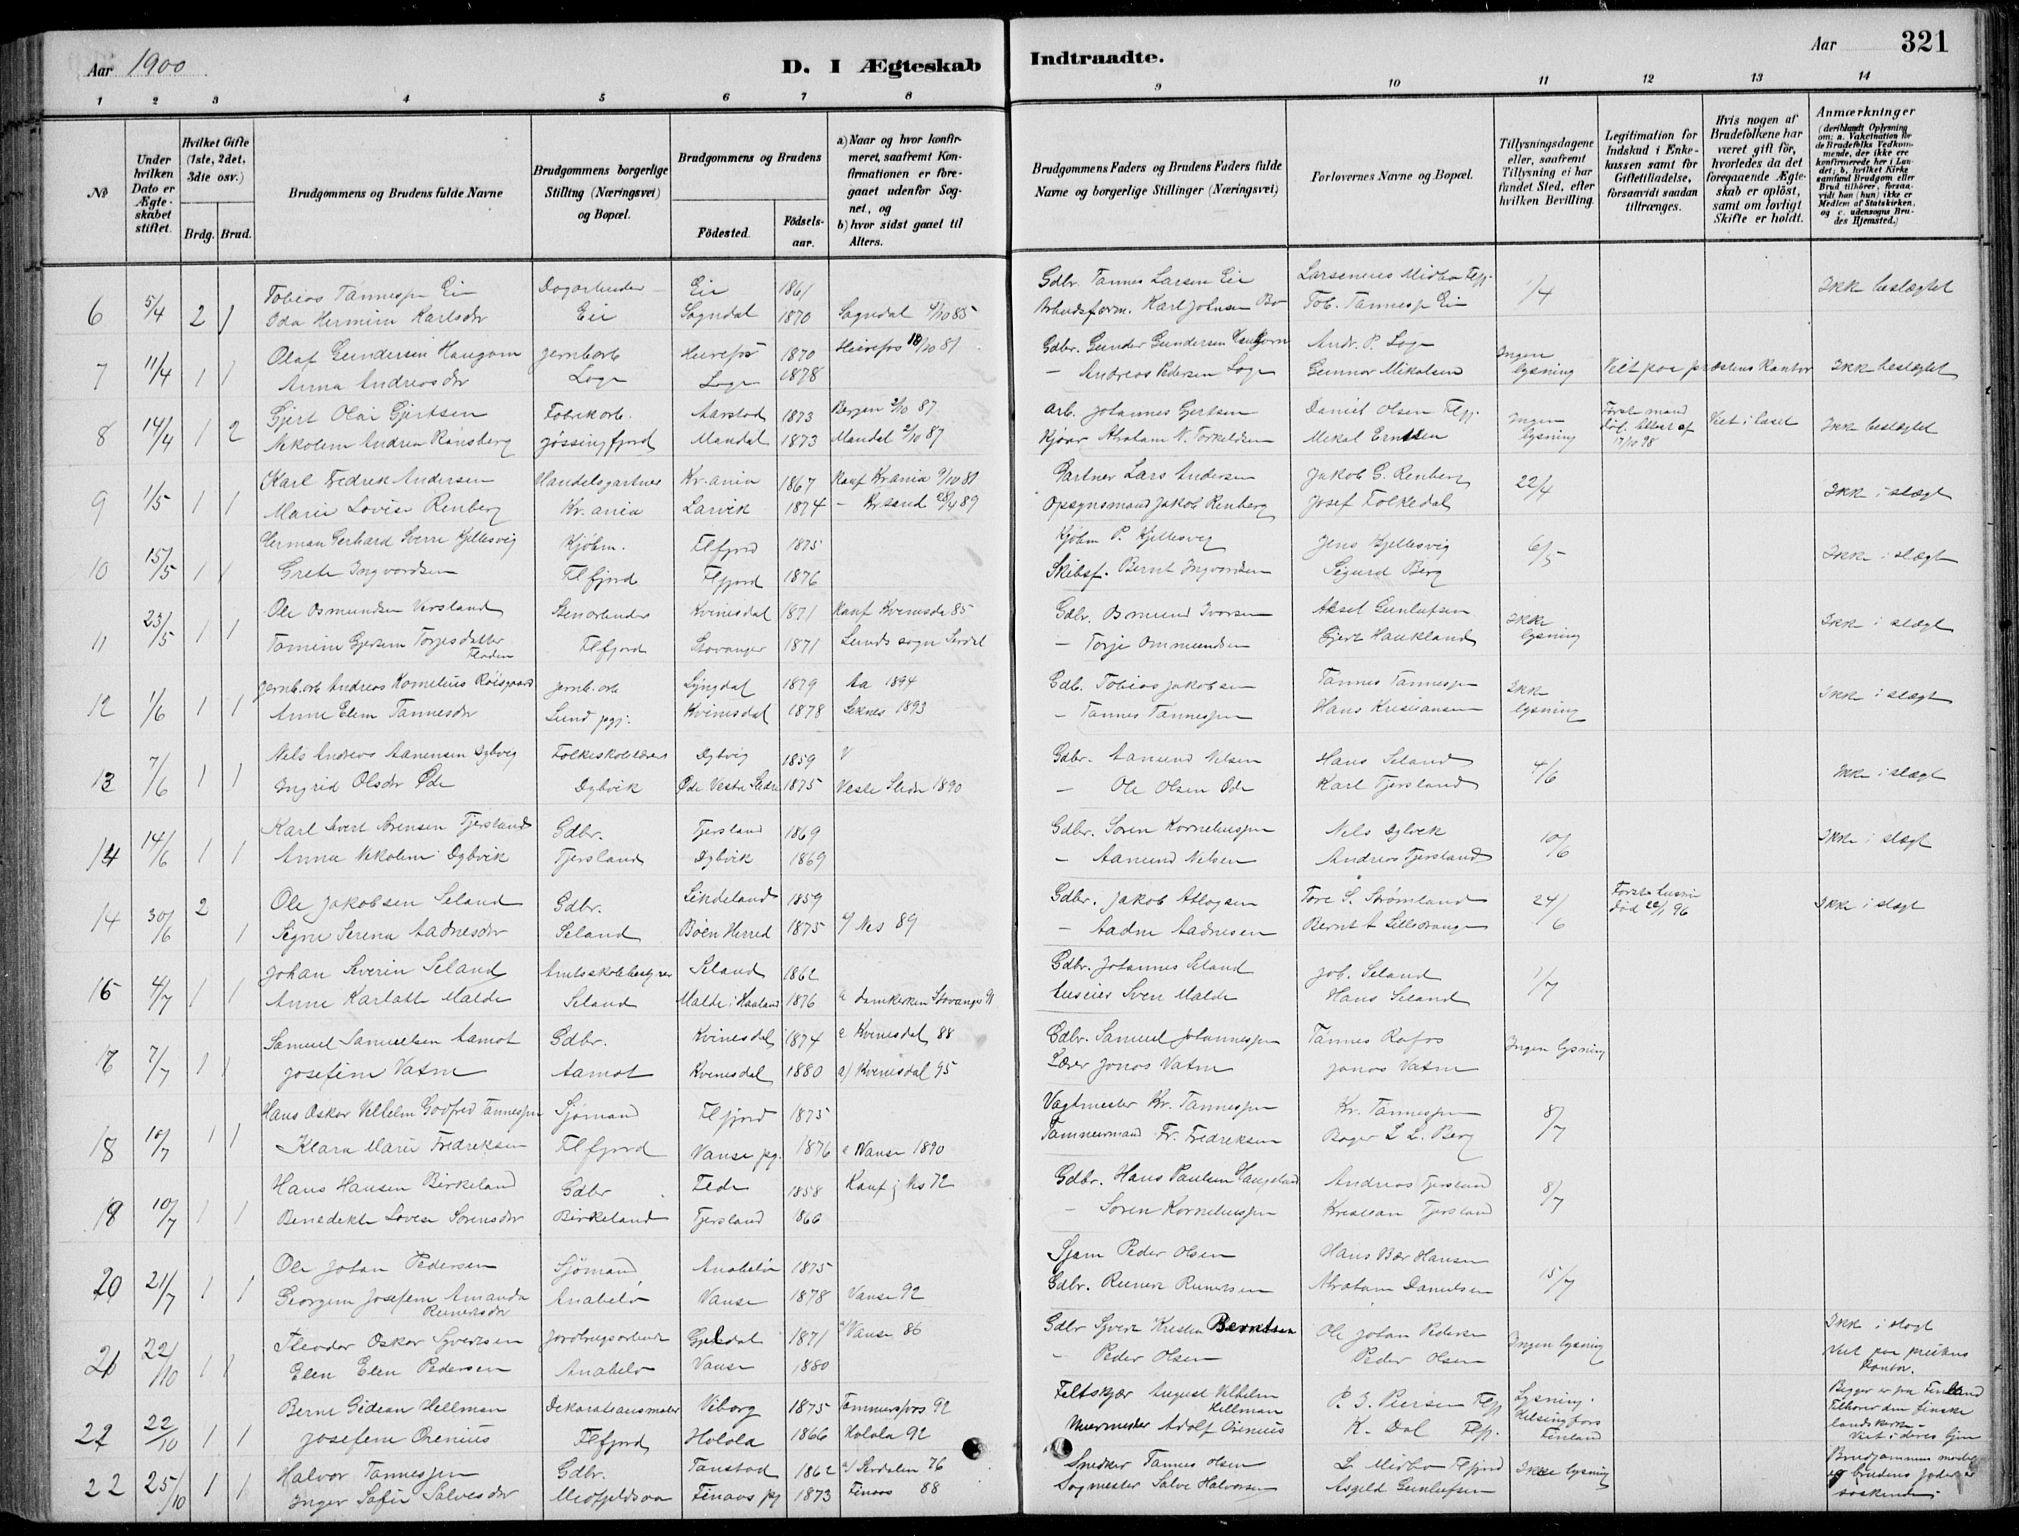 Aar 1900
D. I Ægteskab Indtraadte.
Aar 321
1 2 3 4 5 6 7 8 9 10 11 12 13 14
No
Under hvilken Dato er Ægteskabet stiftet.
Hvilket Gifte (1ste, 2det, 3die osv.)
Brdg. Brud.
Brudgommens og Brudens fulde Navne
Brudgommens borgerlige Stilling (Næringsvei) og Bopæl.
Brudgommens og Brudens
Födested.
Födsels-aar.
a) Naar og hvor konfirmeret, saafremt Konfirmationen er foregaaet udenfor Sognet, og
b) hvor sidst gaaet til Alters.
Brudgommens Faders og Brudens Faders fulde Navne og borgerlige Stillinger (Næringsvei)
Forlovernes Navne og Bopæl.
Tillysningsdagene eller, saafremt Tillysning ei har fundet Sted, efter hvilken Bevilling.
Legitimation for Indskud i Enkekassen samt for Giftetilladelse, forsaavidt saadan tiltrænges.
Hvis nogen af Brudefolkene har været gift för, hvorledes da det foregaaende Ægteskab er oplöst, samt om lovligt Skifte er holdt.
Anmærkninger (deriblandt Oplysning om: a. Vakcination for de Brudefolks Vedkommende, der ikke ere konfirmerede her i Landet; b. hvilket Kirkesamfund Brudgom eller Brud tilhörer, forsaavidt han (hun) ikke er Medlem af Statskirken, og c. udensogns Brudes Hjemsted.)
6 5/4 2 1 Tobias Tønnesen Eie Dagarbeider Eie 1861 Gdbr. Tønnes Larsen Eie 1/4 Ikke beslægtet
Oda Hermine Karlsdtr Eie Sogndal 1870 Sogndal 4/10 85 Arbeidsform. Karl Johnsen Tob. Tønnesen Eie
7 11/4 1 1 Olaf Gundersen Haugom jernbarb Heirefos 1870 Heirefos 18/10 81 Gdbr. Gunder Gundersen Haugom Andr. P. Loge Ingen lysning Viet paa præstens kontor Ikke beslægtet
Anna Andreasdtr Loge Loge 1878 - Andreas Pedersen Loge Gunnar Mikalsen
8 14/4 1 2 Gjert Olai Gjertsen Fabrikarb. Aarstad 1873 Bergen 2/10 87 Arb. Johannes Gjertsen Daniel Olsen Ingen lysning Viet i huset Ikke beslægtet
Nikoline Andrea Rønsberg Jøssingfjord Mandal 1873 Mandal 2/10 87 Abraham N. Torkelsen Mikal Erntsen
9 1/5 1 1 Karl Fredrik Andersen Handelsgartner Kr.ania 1867 Konf Kr.ania 9/10 81 Gartner Lars Andersen Jakob G. Renberg 22/4 Ikke i slægt
Marie Lovise Renberg Kr.ania Larvik 1874 - Krsand 89 Opsynsmand Jakob Renberg Josef Folkedal
10 15/5 1 1 Herman Gerhard Sverre Kjellesvig Kjøbm. Flfjord 1875 Kjøbm P. Kjellesvig Jens Kjellesvig 6/5 Ikke i slægt
Grete Ingvardsen Flfjord Flfjord 1876 Skibsf. Bernt Ingvardsen Sigurd Berg
11 23/5 1 1 Ole Osmundsen Versland Stenarbeider Kvinesdal 1871 Konf Kvinesdal 85 Gdbr. Osmund Ivarsen Aksel Gunlufsen Ikke lysning Ikke i slægt
Tomine Torjesdatter Flfjord Stavanger 1871 Lunds sogn - Torje Ommundsen Gjert Haukland
12 1/6 1 1 Jernb.arb Andreas Kornelius Røisgaard Jernb.arb Lyngdal 1879 Aa 1894 Gdb. Tobias Jakobsen Tønnes Tønnesen Ikke lysning Ikke i slægt
Anne Elene Tønnesdtr Lund pgj. Kvinesdal 1878 1893 - Tønnes Tønnesen Hans Kristiansen
13 7/6 1 1 Nils Andreas Aanensen Dybvig Folkeskolelærer Dybvig 1859 Gdbr. Aanund Nilsen Hans Seland 4/6 Ikke i slægt
Ingrid Olsdtr Øde Dybvik Øde Vestre Slidre 1875 Vestre Slidre 1890 - Ole Olsen Øde Karl Tjersland
14 14/6 1 1 Karl Sørensen Tjersland Gdbr. Tjersland 1869 Gdbr. Søren Korneliussen Nils Dybvik 10/6 Ikke i slægt
Anna Nikoline Dybvik Tjersland Dybvik 1869 - Aanund Nilsen Andreas Tjersland
14 30/6 2 1 Ole Jakobsen Seland Gdbr. Lindeland 1859 Gdbr. Jakob Atlogsen Tore S. Strømland 24/6 Første hustru død 22/1 96 Ikke i slægt
Signe Serena Aadnesdtr Seland Bøen Herred 1875 Nes 89 - Aadne Aadnesen Bernt A Lilledrange
16 4/7 1 1 Johan Severin Seland Amtsskolebestyrer Seland 1862 Gdbr. Johannes Seland Job. Seland 1/7
Anne Karlotte Malde Seland Malde i Haaland 1876 Domkirken Stavanger 91 Huseier Sven Malde Hans Seland
18 7/7 1 1 Samuel Samuelsen Aamot Gdbr. Kvinesdal 1874 Kvinesdal 88 Gdbr. Samuel Johannessen Tønnes Rafos Ingen lysning
Josefine Vatne Aamot Kvinesdal 1880 a) Kvinesdal 95 Lærer Jonas Vatne Jonas Vatne
18 10/7 1 1 Hans Oskar Vilhelm Godfred Tønnessen Sjømand Flfjord 1875 Vagtmester Kr. Tønnessen Kr. Tønnessen 8/7
Klara Marie Fredriksen Flfjord Vanse pg. 1876 Vanse 1890 Tømmermand Fr. Fredriksen Bager L L. Berg
19 10/7 1 1 Hans Hansen Birkeland Gdbr Feda 1858 Konf i Nes 72 Gdbr. Hans Paulsen Haugeland Andreas Tjersland 8/7
Benedikte Lovise Sørensdtr Birkeland Tjersland 1866 - Søren Korneliussen Kristian Tjersland
20 21/7 1 1 Ole Johan Pedersen Sjømand Anabeløe 1875 Sjøm Peder Olsen Hans Bær Hansen 15/7
Georgine Josefine Amanda Reinertsdtr Anabelø Vanse 1878 Vanse 92 Gdbr. Reinert Reinertsen Abraham Danielsen
21 22/10 1 1 Theodor Oskar Syvertsen Jordbrugsarbeider Gyldal 1871 Vanse 86 Gdbr Syvert Kristen Berntsen Ole Johan Pedersen Ingen lysning Ikke i slægt
Elen Elen Pedersen Anabelø Vanse 1880 - Peder Olsen Peder Olsen Viet paa prestens kontor.
22 22/10 1 1 Bernt Gidean Hellman Dekorationsmaler Viborg 1875 Tammerfors 92 Feltskjær August Vilhelm Hellman Lysning Helsingfors Finland Begge er fra Finland Tilhører den finske landskirke. Viet i deres hjem
Josefine Orenius Flfjord Holola 1866 Holola 92 Murmester Adolf Orenius K. Dal
22 25/10 1 1 Halvor Tønnessen Gdbr. Tonstad 1862 a) Sirdalen 76 Snedker Tønnes Olsen L. Midbø Flfjord Ikke lysning Brudgommens moder og brudens fader er søskende.
Inger Sofie Salvesdtr Medfjeldsaa Finaas pg 1873 Finaas 88 Sogmester Salve Halvorsen Asgeld Gunlufsen